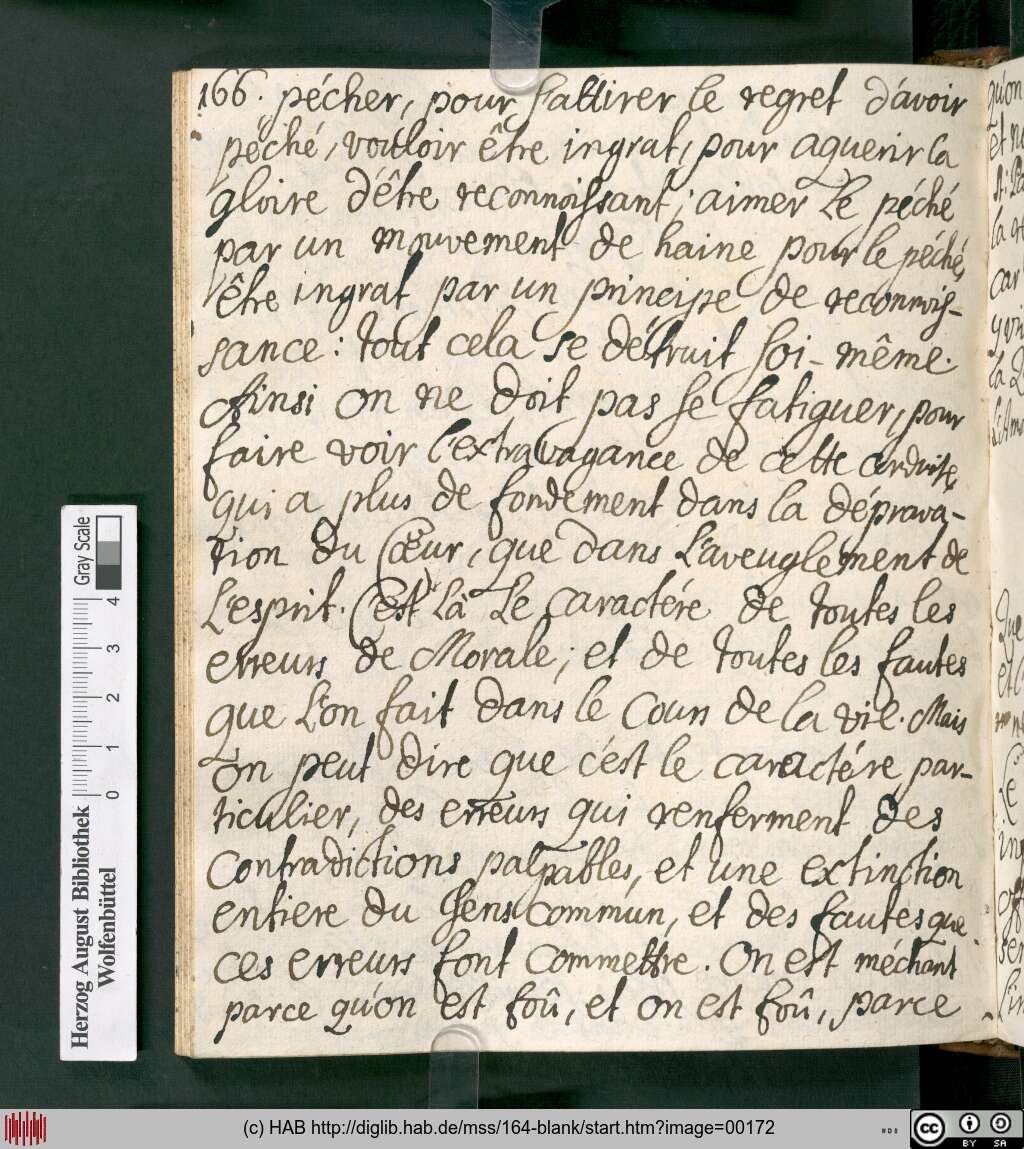 166. pécher, pour s'attirer le regret d'avoir
péché, vouloir être ingrat, pour aquerir la
gloire d'être reconnoissant; aimer le péché
par un mouvement de haine pour le péché,
être ingrat par un principe de reconnois-
sance: tout cela se détruit soi-même.
Ainsi on ne doit pas se fatiguer, pour
faire voir l'extravagance de cette conduite,
qui a plus de fondement dans la dèprava-
tion du Cœur, que dans L'aveuglément de
L'esprit. C'est là Le caractére de toutes les
erreurs de Morale; et de toutes les fautes
que L'on fait dans le Cours de la vie. Mais
on peut dire que c'ést le caractére par-
ticulier, des erreurs qui renferment des
Contradictions palpables, et une extinction
entiere du Sens Commun, et des fautes que
ces erreurs font Commettre. On est méchant
parce qu'on est foû, et on est foû, parce
Gray Scale
0 1 2 3 4
Herzog August Bibliothek
Wolfenbüttel
(c) HAB http://diglib.hab.de/mss/164-blank/start.htm?image=00172
cc BY SA